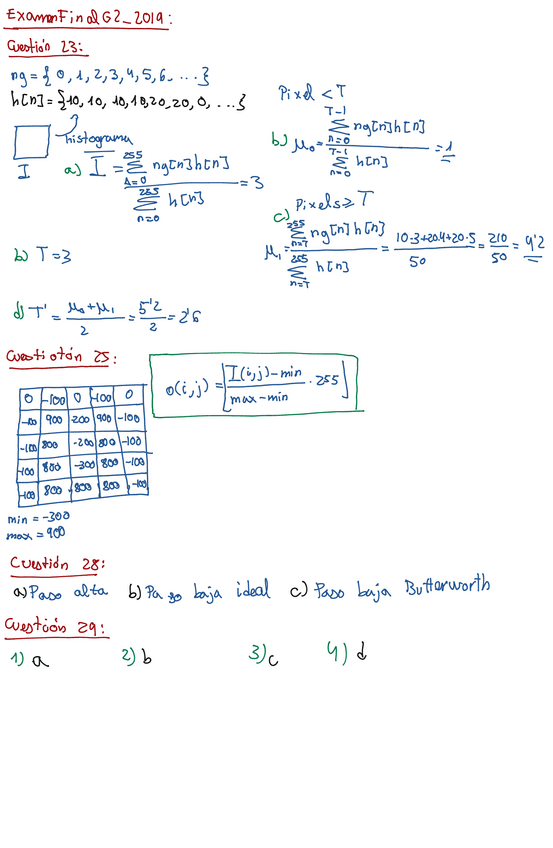 Examen Final G2_2019:
Cuestión 23:
ng = { 0, 1, 2, 3, 4, 5, 6, ... }
h[n] = {10, 10, 10, 10, 20, 20, 0, ...}
histograma
I
a) I = Σ(n=0..255) ng[n]h[n] / Σ(n=0..255) h[n] = 3
Pixel < T
b) μ₀ = Σ(n=0..T-1) ng[n]h[n] / Σ(n=0..T-1) h[n] = 1
b) T = 3
Pixels ≥ T
c) μ₁ = Σ(n=T..255) ng[n]h[n] / Σ(n=T..255) h[n] = 10·3+20·4+20·5 / 50 = 210 / 50 = 4'2
d) T' = μ₀+μ₁ / 2 = 5'2 / 2 = 2'6
Cuestiotón 25:
o(i,j) = ⌊ I(i,j) − min / max − min · 255 ⌋
0 -100 0 -100 0
-100 900 200 900 -100
-100 800 -200 800 -100
-100 800 -300 800 -100
-100 800 800 800 -100
min = -300
max = 900
Cuestión 28:
a) Paso alta b) Paso baja ideal c) Paso baja Butterworth
Cuestión 29:
1) a 2) b 3) c 4) d